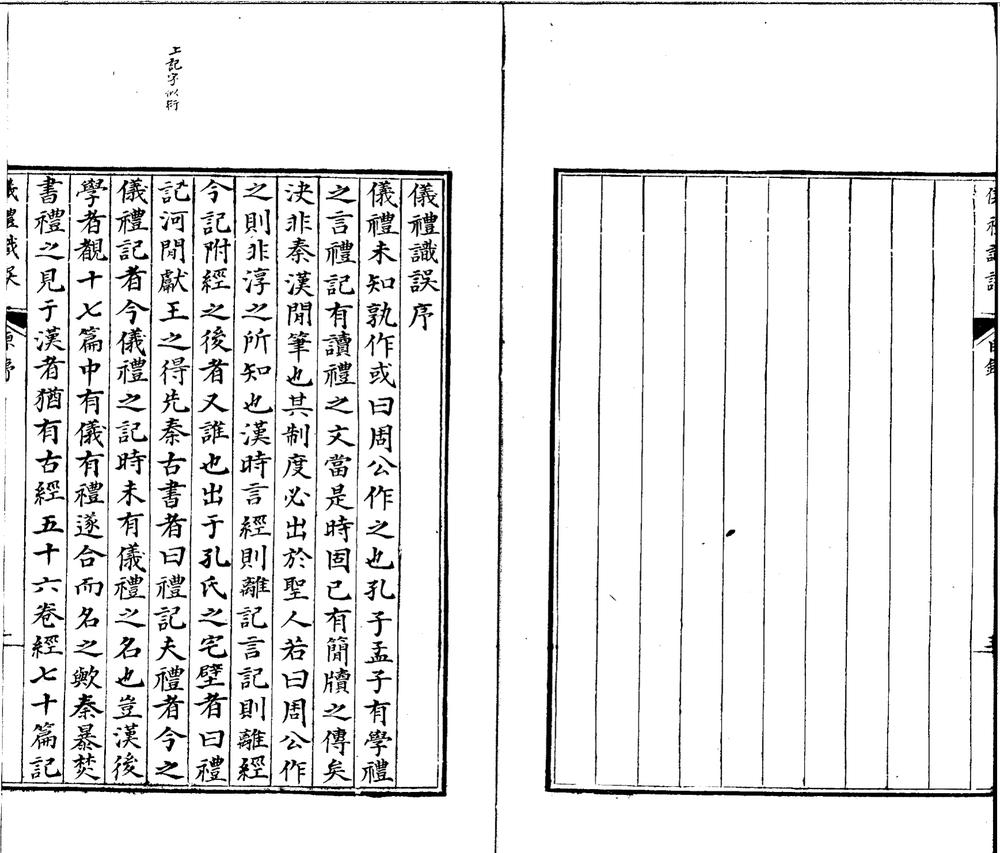 儀禮識誤 目錄
儀禮識誤序
儀禮未知孰作或曰周公作之也孔子孟子有學禮
之言禮記有讀禮之文當是時固已有簡牘之傳矣
決非秦漢閒筆也其制度必出於聖人若曰周公作
之則非淳之所知也漢時言經則離記言記則離經
今記附經之後者又誰也出于孔氏之宅壁者曰禮
記河閒獻王之得先秦古書者曰禮記夫禮者今之
上記字似衍
儀禮記者今儀禮之記時未有儀禮之名也豈漢後
學者覩十七篇中有儀有禮遂合而名之歟秦暴焚
書禮之見于漢者猶有古經五十六卷經七十篇記
儀禮識誤 原序 一